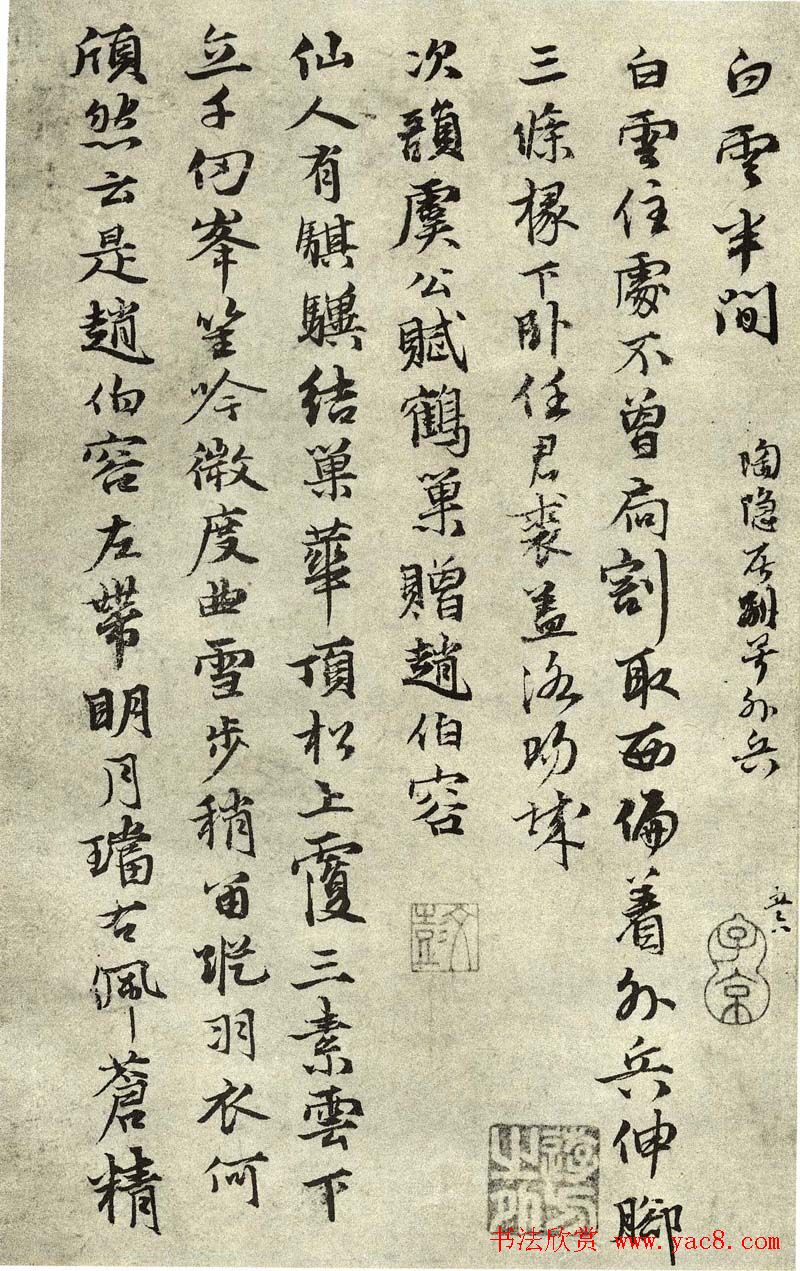 白雲半間
陶隐居別号外兵
白雲住處不曾扃割取西偏着外兵伸腳
三條椽下卧任君裘盖洛陽城
次韻虞公賦鶴巢贈趙伯容
仙人有騏驥結巢華頂松上覆三素雲下
立千仞峯笙吟微度曲雪步稍留蹤羽衣何
頎然云是趙伯容左帶明月璫右佩蒼精
子京
文彭
书法欣赏 www.yac8.com